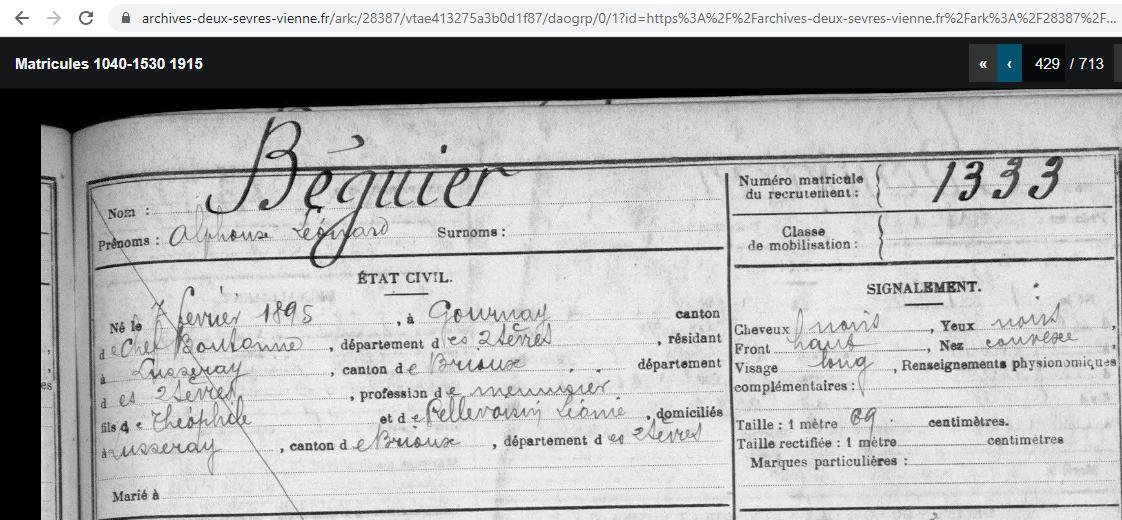 archives-deux-sevres-vienne.fr/ark:/28387/vtae413275a3b0d1f87/daogrp/0/1?id=https%3A%2F%2Farchives-deux-sevres-vienne.fr%2Fark%3A%2F28387%2F...
Matricules 1040-1530 1915
« ‹ 429 / 713
Béguier
Nom :
Prénoms : Alphonse Léonard Surnoms :
Numéro matricule du recrutement : 1333
Classe de mobilisation :
ÉTAT CIVIL.
Né le 7 février 1895, à Gournay canton
de Chef Boutonne, département des 2 Sèvres, résidant
à Lusseray, canton de Brioux département
des 2 Sèvres, profession de menuisier
fils de Théophile et de Pellevoisin Léonie, domiciliés
à Lusseray, canton de Brioux, département des 2 Sèvres
Marié à
SIGNALEMENT.
Cheveux noirs, Yeux noirs,
Front haut, Nez convexe
Visage long, Renseignements physionomiques
complémentaires :
Taille : 1 mètre 69 centimètres.
Taille rectifiée : 1 mètre centimètres
Marques particulières :